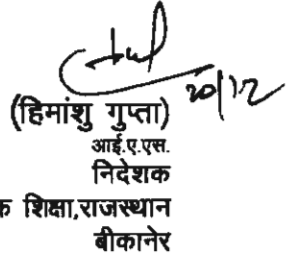 20/12
(हिमांशु गुप्ता)
आई.ए.एस.
निदेशक
क शिक्षा,राजस्थान
बीकानेर